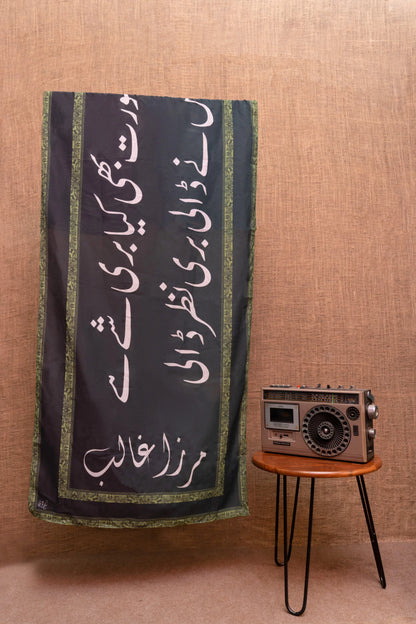 ورت بھی کیا بری شے ہے
س نے ڈالی بری نظر ڈالی
مرزا غالب